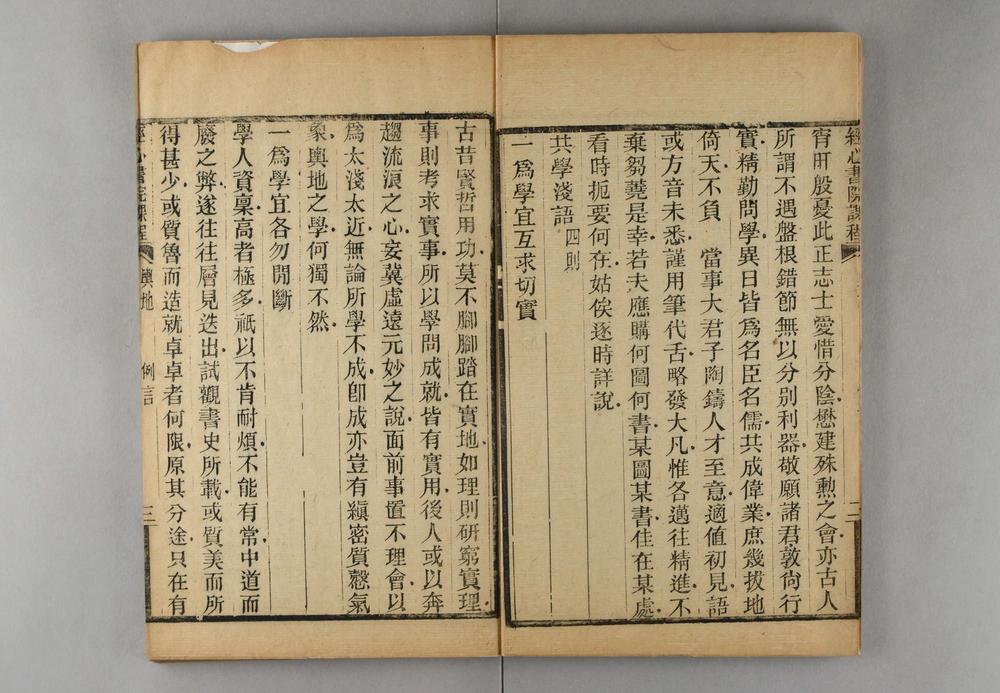 經心書院課程
二
宵旰殷憂此正志士愛惜分陰懋建殊勳之會亦古人
所謂不遇盤根錯節無以分別利器敬願諸君敦尙行
實精勤問學異日皆爲名臣名儒共成偉業庶幾拔地
倚天不負 當事大君子陶鑄人才至意適値初見語
或方音未悉謹用筆代舌略發大凡惟各邁往精進不
棄芻蕘是幸若夫應購何圖何書某圖某書佳在某處
看時扼要何在姑俟逐時詳說
共學淺語 四則
一爲學宜互求切實
古昔賢哲用功莫不腳腳踏在實地如理則硏窮實理
事則考求實事所以學問成就皆有實用後人或以奔
趨流浪之心妄冀虛遠元妙之說面前事置不理會以
爲太淺太近無論所學不成卽成亦豈有縝密質慤氣
象輿地之學何獨不然
一爲學宜各勿閒斷
學人資稟高者極多祇以不肯耐煩不能有常中道而
廢之弊遂往往層見迭出試觀書史所載或質美而所
得甚少或質魯而造就卓卓者何限原其分途只在有
經心書院課程 輿地 例言 三